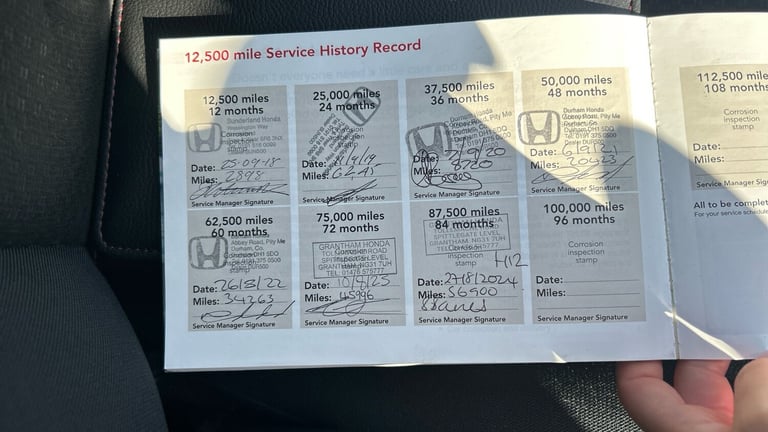 12,500 mile Service History Record
12,500 miles
12 months
Sunderland Honda
Corrosion
inspection
stamp
Date: 05-09-18
Miles: 2898
Service Manager Signature
25,000 miles
24 months
Corrosion
inspection
stamp
Date:
Miles:
Service Manager Signature
37,500 miles
36 months
Durham Honda
Abbey Road, Pity Me
Durham DH1 5DQ
Date:
Miles: 8720
Service Manager Signature
50,000 miles
48 months
Durham Honda
Abbey Road, Pity Me
Durham, Co.
Durham DH1 5DQ
Date:
Miles: 20423
Service Manager Signature
62,500 miles
60 months
Abbey Road, Pity Me
Durham, Co.
stamp
Date: 26/8/22
Miles: 34263
Service Manager Signature
75,000 miles
72 months
GRANTHAM HONDA
SPITTLEGATE LEVEL
GRANTHAM NG31 7UH
TEL: 01476 575777
Date:
Miles: 45996
Service Manager Signature
87,500 miles
84 months
GRANTHAM HONDA
SPITTLEGATE LEVEL
GRANTHAM. NG31 7UH
inspection
stamp
Date: 27/8/2024
Miles: 56900
Service Manager Signature
100,000 miles
96 months
Corrosion
inspection
stamp
Date:
Miles:
Service Manager Signature
112,500 miles
108 months
Corrosion
inspection
stamp
Date:
Miles:
Service Manager Signa
All to be complet
For your service schedule